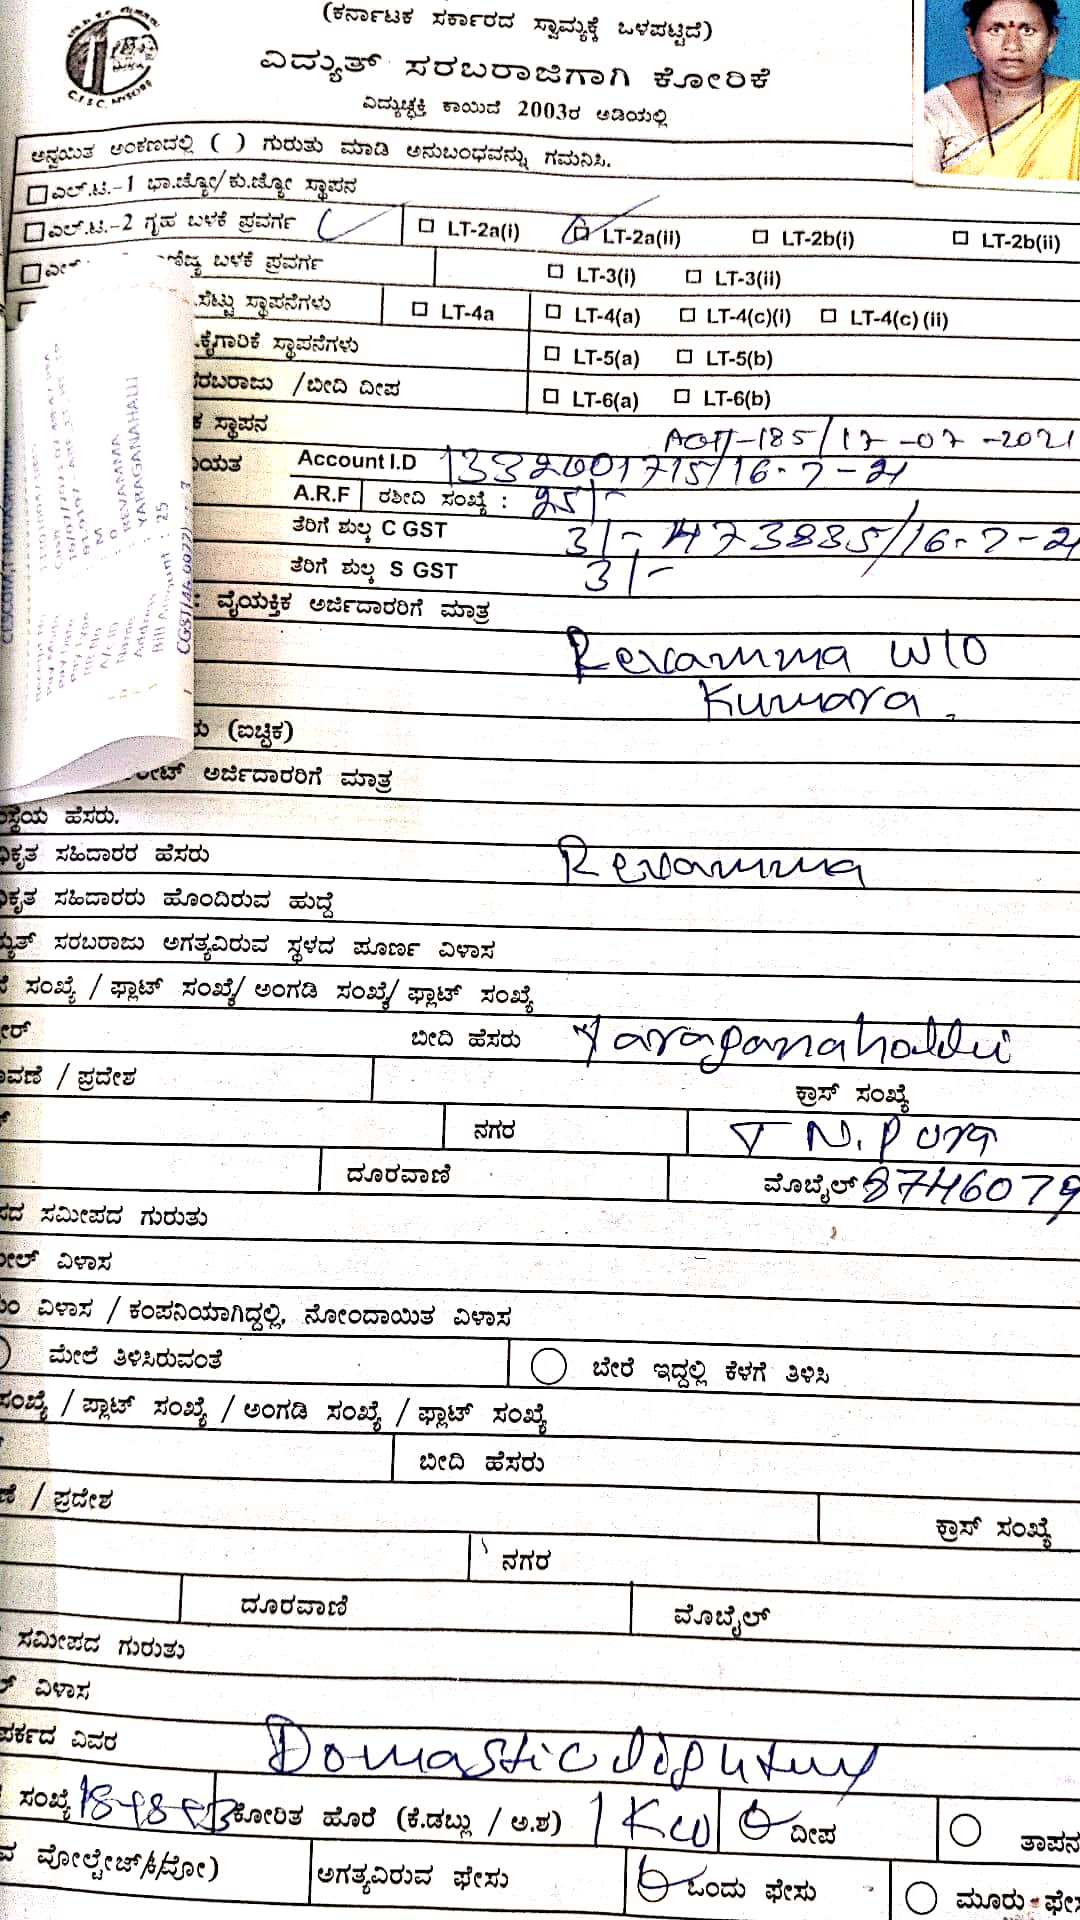 C.E.S.C. MYSORE
(ಕರ್ನಾಟಕ ಸರ್ಕಾರದ ಸ್ವಾಮ್ಯಕ್ಕೆ ಒಳಪಟ್ಟಿದೆ)
ವಿದ್ಯುತ್ ಸರಬರಾಜಿಗಾಗಿ ಕೋರಿಕೆ
ವಿದ್ಯುಚ್ಛಕ್ತಿ ಕಾಯಿದೆ 2003ರ ಅಡಿಯಲ್ಲಿ
ಅನ್ವಯಿತ ಅಂಕಣದಲ್ಲಿ ( ) ಗುರುತು ಮಾಡಿ ಅನುಬಂಧವನ್ನು ಗಮನಿಸಿ.
ಎಲ್.ಟಿ.-1 ಭಾ.ಜ್ಯೋ/ಕು.ಜ್ಯೋ ಸ್ಥಾಪನ
ಎಲ್.ಟಿ.-2 ಗೃಹ ಬಳಕೆ ಪ್ರವರ್ಗ LT-2a(i) LT-2a(ii) LT-2b(i) LT-2b(ii)
ಬಳಕೆ ಪ್ರವರ್ಗ LT-3(i) LT-3(ii)
ಸೆಟ್ಟು ಸ್ಥಾಪನೆಗಳು LT-4a LT-4(a) LT-4(c)(i) LT-4(c) (ii)
ಕೈಗಾರಿಕೆ ಸ್ಥಾಪನೆಗಳು LT-5(a) LT-5(b)
ಸರಬರಾಜು /ಬೀದಿ ದೀಪ LT-6(a) LT-6(b)
ಸ್ಥಾಪನ 185/17-07-2021
Account I.D 1332001715/16-7-21
A.R.F ರಶೀದಿ ಸಂಖ್ಯೆ : 25/-
ತೆರಿಗೆ ಶುಲ್ಕ C GST 3/- 473885/16-7-21
ತೆರಿಗೆ ಶುಲ್ಕ S GST 3/-
: ವೈಯಕ್ತಿಕ ಅರ್ಜಿದಾರರಿಗೆ ಮಾತ್ರ
Revamma W/O
Kumara.
(ಐಚ್ಛಿಕ)
ಅರ್ಜಿದಾರರಿಗೆ ಮಾತ್ರ
Name : REVAMMA
Address : YARAGANAHALLI
Bill Amount : 25
ಹೆಸರು.
ಸಹಿದಾರರ ಹೆಸರು Revamma
ಸಹಿದಾರರು ಹೊಂದಿರುವ ಹುದ್ದೆ
ಸರಬರಾಜು ಅಗತ್ಯವಿರುವ ಸ್ಥಳದ ಪೂರ್ಣ ವಿಳಾಸ
ಸಂಖ್ಯೆ / ಫ್ಲಾಟ್ ಸಂಖ್ಯೆ/ ಅಂಗಡಿ ಸಂಖ್ಯೆ/ ಫ್ಲಾಟ್ ಸಂಖ್ಯೆ
ಬೀದಿ ಹೆಸರು Yaraganahalli
/ ಪ್ರದೇಶ ಕ್ರಾಸ್ ಸಂಖ್ಯೆ
ನಗರ T N. Pura
ದೂರವಾಣಿ ಮೊಬೈಲ್ 8746079
ಸಮೀಪದ ಗುರುತು
ವಿಳಾಸ
ವಿಳಾಸ / ಕಂಪನಿಯಾಗಿದ್ದಲ್ಲಿ, ನೋಂದಾಯಿತ ವಿಳಾಸ
ಮೇಲೆ ತಿಳಿಸಿರುವಂತೆ ಬೇರೆ ಇದ್ದಲ್ಲಿ ಕೆಳಗೆ ತಿಳಿಸಿ
ಸಂಖ್ಯೆ / ಪ್ಲಾಟ್ ಸಂಖ್ಯೆ / ಅಂಗಡಿ ಸಂಖ್ಯೆ / ಫ್ಲಾಟ್ ಸಂಖ್ಯೆ
ಬೀದಿ ಹೆಸರು
/ ಪ್ರದೇಶ ಕ್ರಾಸ್ ಸಂಖ್ಯೆ
ನಗರ
ದೂರವಾಣಿ ಮೊಬೈಲ್
ಸಮೀಪದ ಗುರುತು
ವಿಳಾಸ
ವಿವರ Domastic
ಸಂಖ್ಯೆ ಕೋರಿತ ಹೊರೆ (ಕೆ.ಡಬ್ಲು / ಅ.ಶ) 1 KW ದೀಪ ತಾಪನ
ಅಗತ್ಯವಿರುವ ಫೇಸು ಒಂದು ಫೇಸು ಮೂರು ಫೇಸು